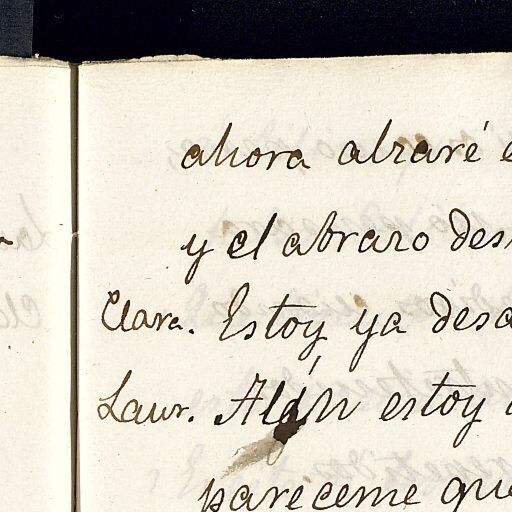 ahora alzaré e
y el abrazo des
Clara. Estoy ya desa
Laur. Alán estoy
pareceme que